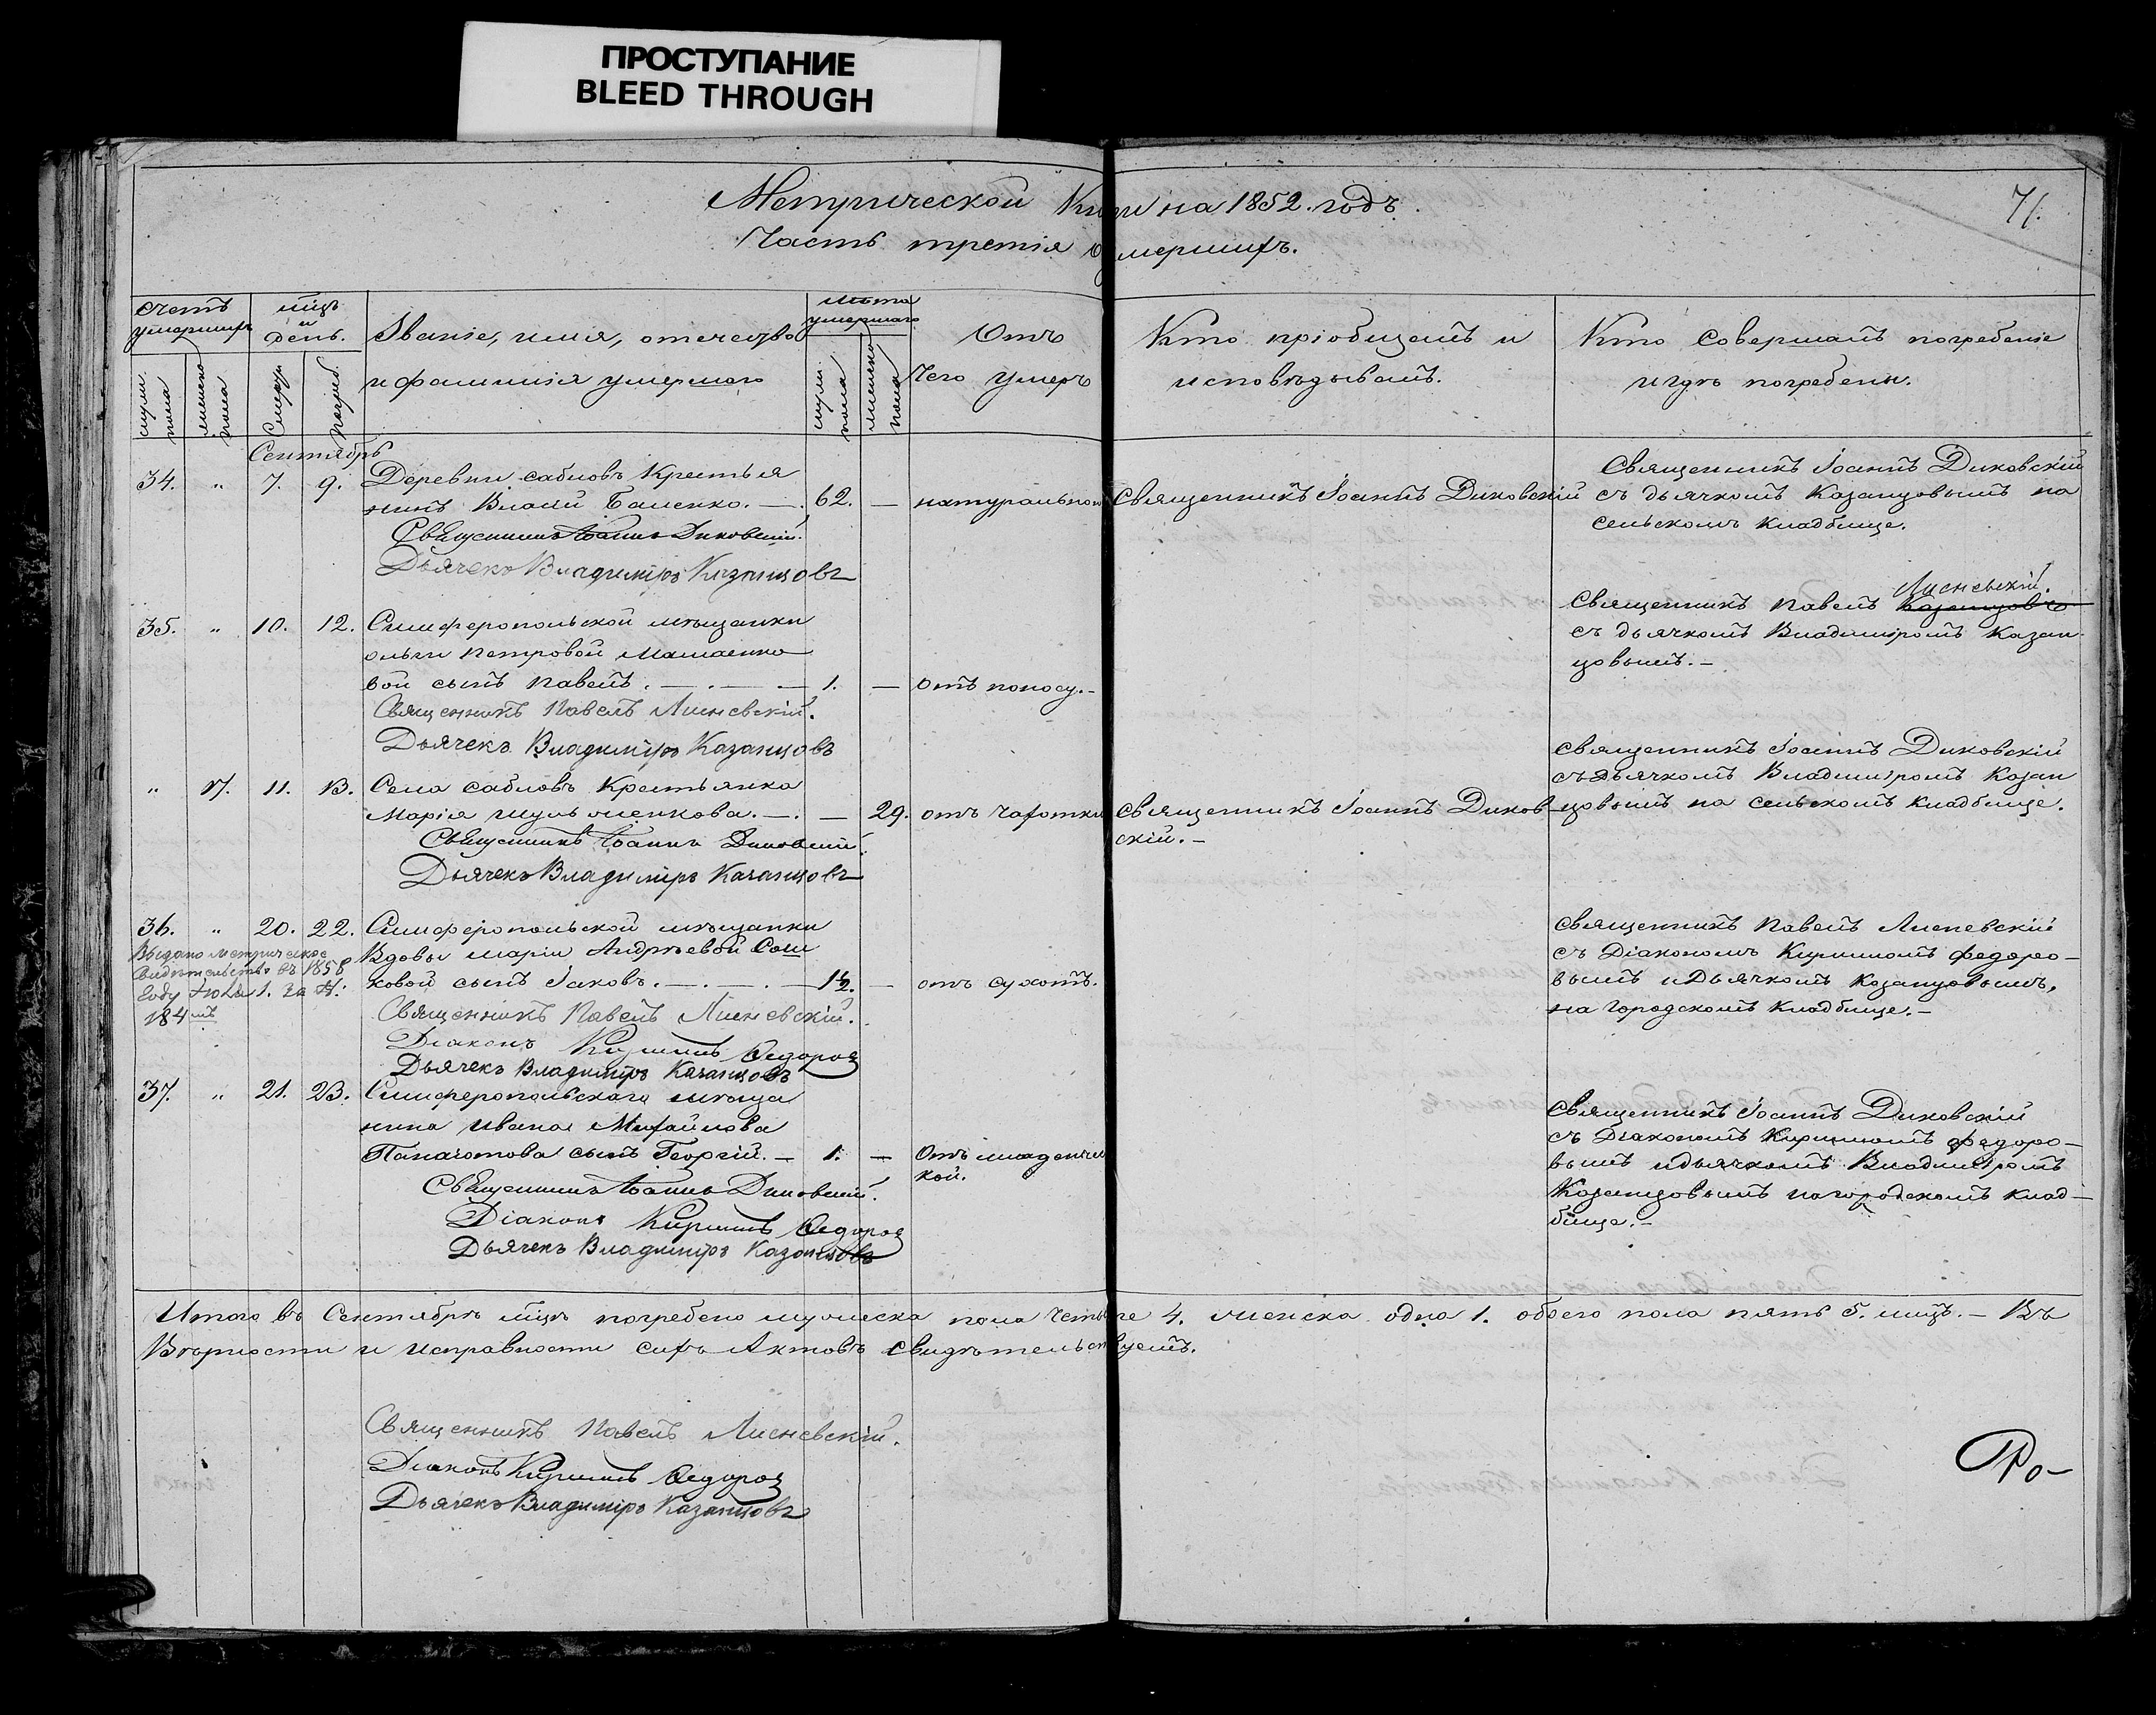 ПРОСТУПАНИЕ
BLEED THROUGH
Метрической Книги на 1852. годъ.
71.
Часть третія о умершихъ.
счетъ умершихъ
мцъ и день.
Званіе, имя, отечество
и фамилія умершаго
Лѣта умершаго
Отъ
чего умеръ
Кто пріобщалъ и
исповѣдывалъ.
Кто совершалъ погребеніе
и гдѣ погребены.
муж. пола
женска пола
Смерт.
Погреб.
муж. пола
женска пола
Сентябрь
34. " 7. 9. Деревни сабловъ Крестья
нинъ Власій Баленко. — 62. — натуральной
Священникъ Іоаннъ Диковскій.
Дьячекъ Владиміръ Казанцовъ
Священникъ Іоаннъ Диковскій
Священникъ Іоаннъ Диковскій
съ дьячкомъ Казанцовымъ на
сельскомъ кладбище.
35. " 10. 12. Симферопольской мѣщанки
ольги Петровой
вой сынъ Павелъ. — 1. — отъ поносу.
Священникъ Павелъ Лисневскій.
Дьячекъ Владиміръ Казанцовъ
Лисневскій.
Священникъ Павелъ Казанцовъ
съ дьячкомъ Владиміромъ Казан
цовымъ.
" 17. 11. 13. Села сабловъ Крестьянка
Марія Шульженкова. — — 29. отъ чахотки
Священникъ Іоаннъ Диковскій.
Дьячекъ Владиміръ Казанцовъ
Священникъ Іоаннъ Диков
скій.
Священникъ Іоаннъ Диковскій
съ дьячкомъ Владиміромъ Казан
цовымъ на сельскомъ кладбище.
36. " 20. 22. Симферопольской мѣщанки
Вдовы Маріи Андрѣевой Сош
ковой сынъ Іаковъ. — 1½. — отъ сухотъ.
Выдано метрическое
свидѣтельство въ 1858
году Іюля 1. за №:
184мъ
Священникъ Павелъ Лисневскій.
Діаконъ Кириллъ Федоров
Дьячекъ Владиміръ Казанцовъ
Священникъ Павелъ Лисневскій
съ Діакономъ Кирилломъ Федоро—
вымъ и Дьячкомъ Казанцовымъ,
на городскомъ кладбище.
37. " 21. 23. Симферопольскаго мѣща
нина Ивана Михайлова
Паначотова сынъ Георгій. — 1. — Отъ младенчес
кой.
Священникъ Іоаннъ Диковскій.
Діаконъ Кириллъ Федоров
Дьячекъ Владиміръ Казанцовъ
Священникъ Іоаннъ Диковскій
съ Діакономъ Кирилломъ Федоро—
вымъ и дьячкомъ Владиміромъ
Казанцовымъ на городскомъ клад—
бище.
Итого въ Сентябрѣ мцѣ погребено мужеска пола четыре 4. женска одна 1. обоего пола пять 5. лицъ. — Въ
Вѣрности и исправности сихъ Актовъ свидѣтельствуемъ.
Священникъ Павелъ Лисневскій.
Діаконъ Кириллъ Федоров
Дьячекъ Владиміръ Казанцовъ
Ро—